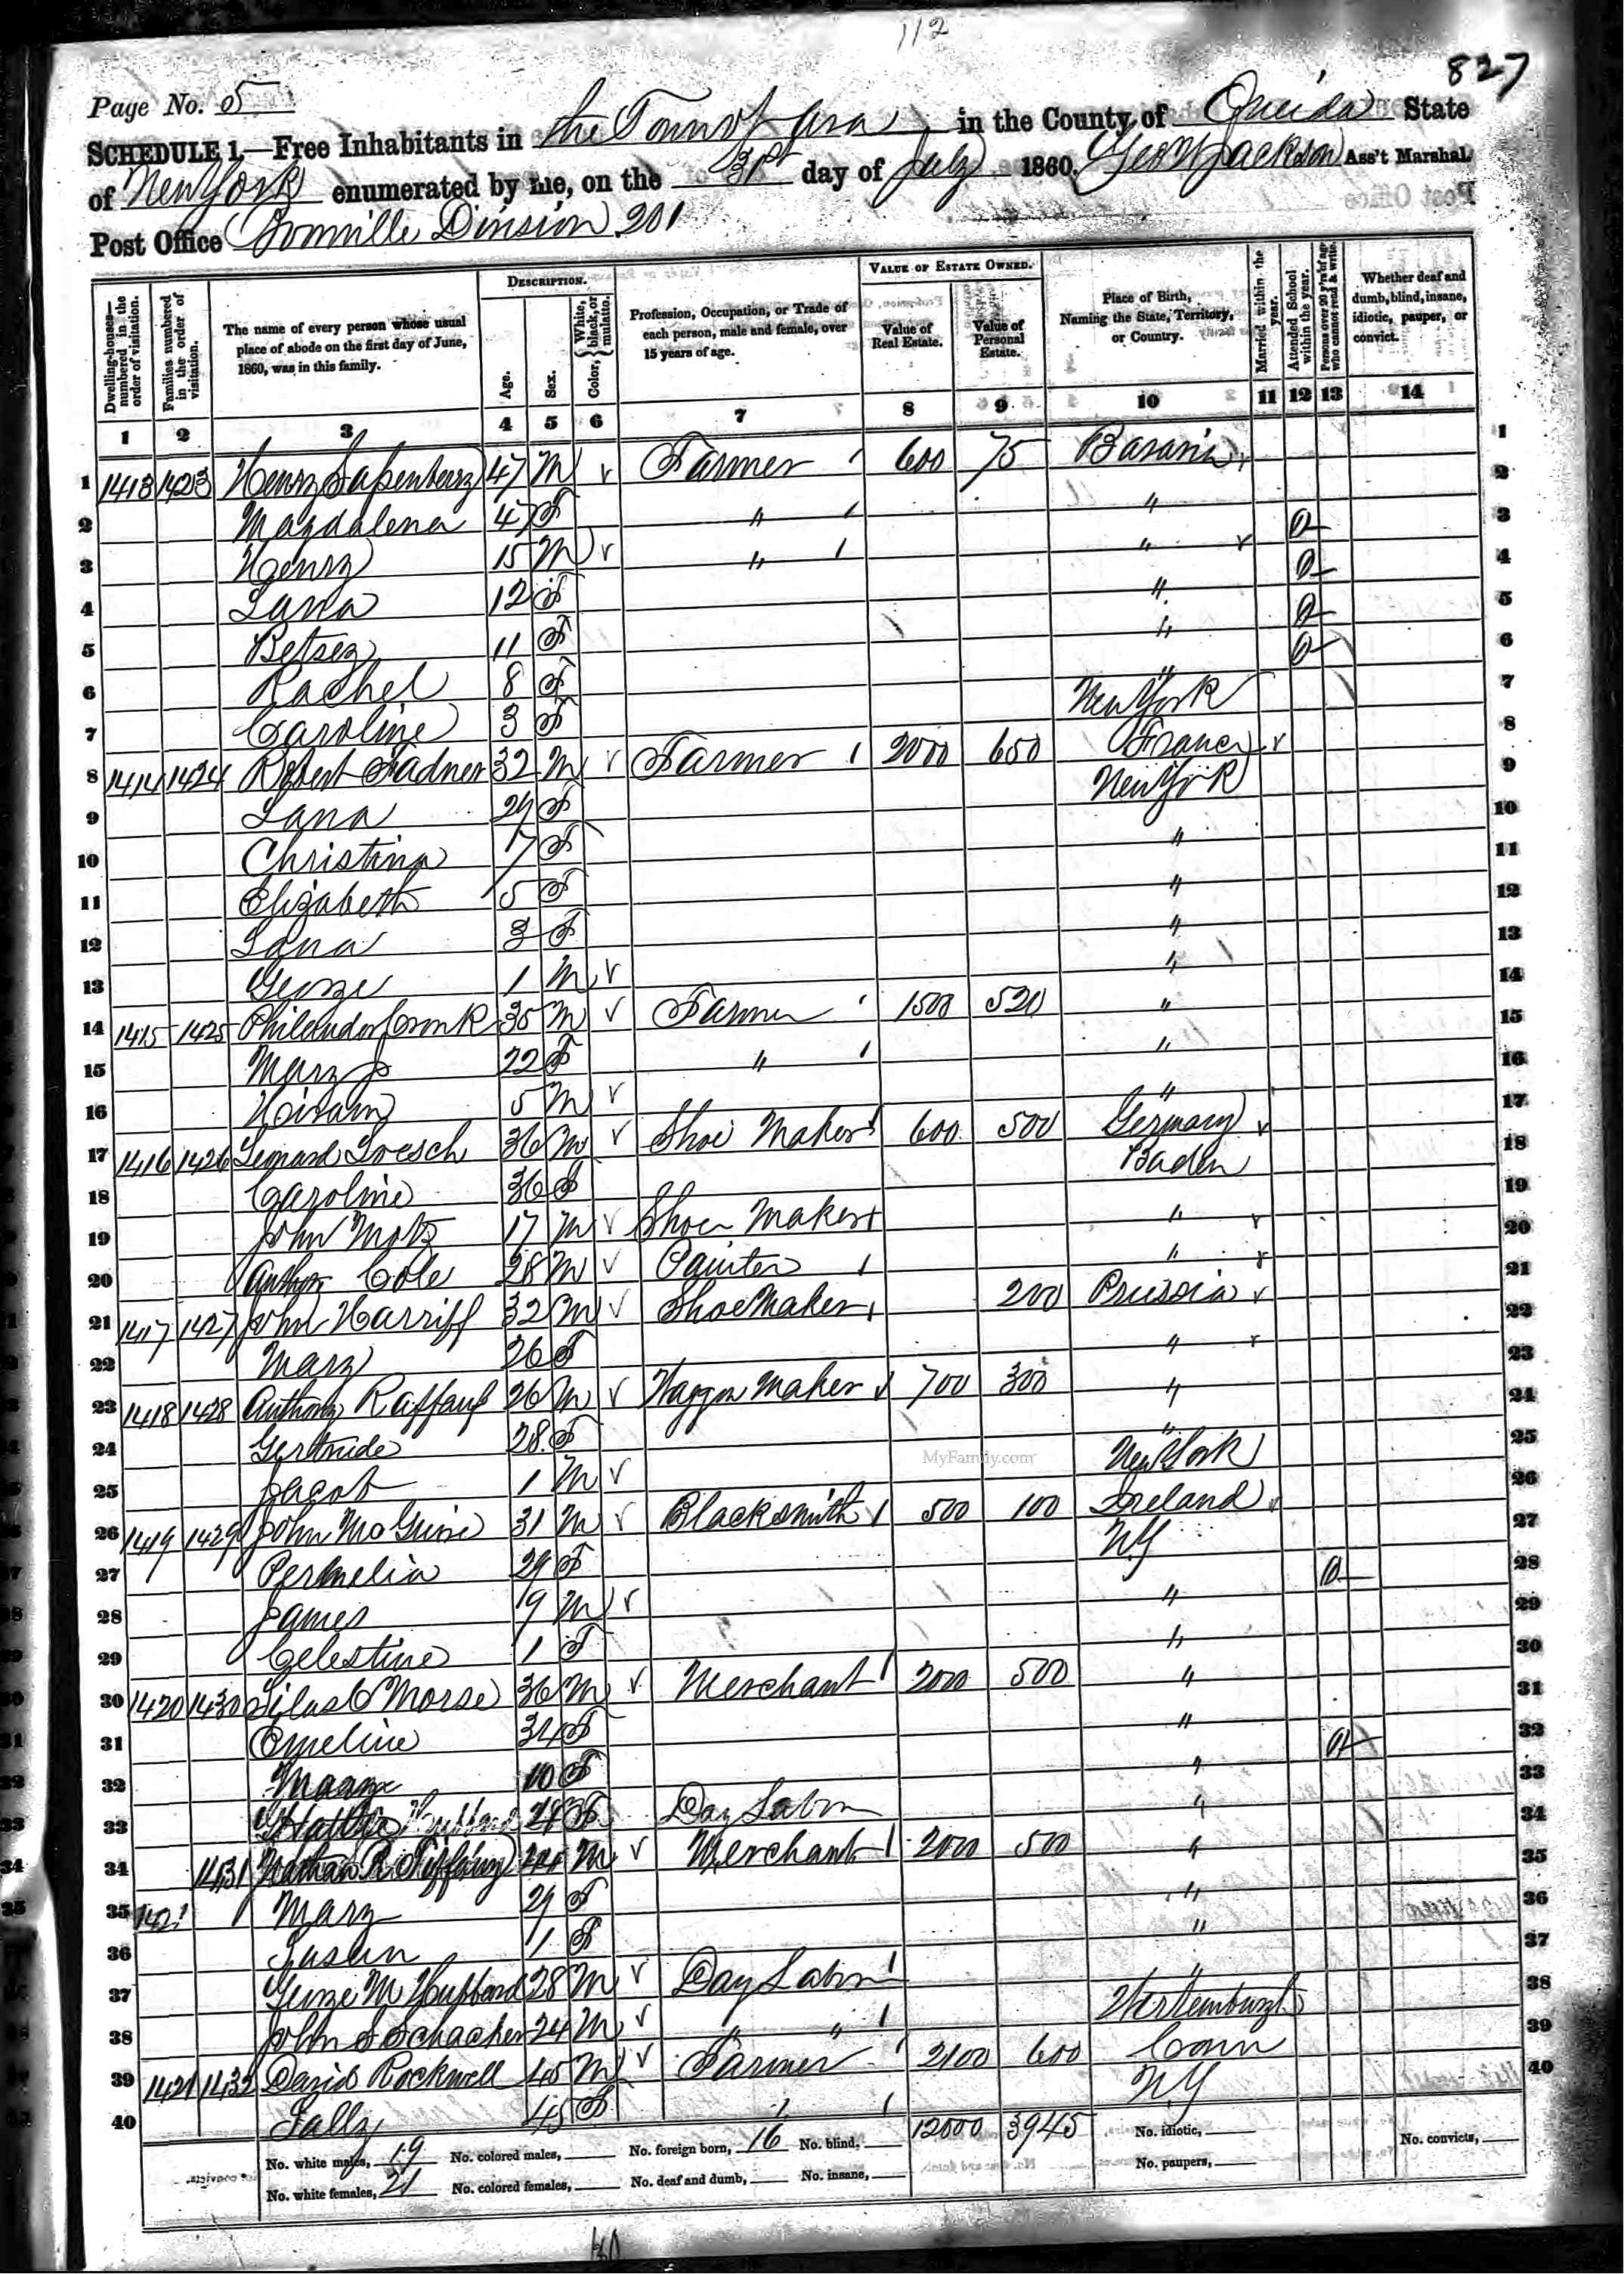 112
827
Page No. 5
SCHEDULE 1.—Free Inhabitants in the Town of Ava in the County of Oneida State
of New York enumerated by me, on the 31st day of July 1860. Geo W Jackson Ass't Marshal.
Post Office Boonville Division 201
Dwelling-houses—numbered in the order of visitation.
Families numbered in the order of visitation.
The name of every person whose usual place of abode on the first day of June, 1860, was in this family.
DESCRIPTION.
Age.
Sex.
Color, { White, black, or mulatto.
Profession, Occupation, or Trade of each person, male and female, over 15 years of age.
VALUE OF ESTATE OWNED.
Value of Real Estate.
Value of Personal Estate.
Place of Birth, Naming the State, Territory, or Country.
Married within the year.
Attended School within the year.
Persons over 20 y'rs of age who cannot read & write.
Whether deaf and dumb, blind, insane, idiotic, pauper, or convict.
1 2 3 4 5 6 7 8 9 10 11 12 13 14
1 1413 1423 Henry 47 M Farmer 600 75 Bavaria 1
2 Magdalena 47 F " " 2
3 Henry 15 M " " 3
4 Lana 12 F " 4
5 Betsey 11 F " 5
6 Rachel 8 F " 6
7 Caroline 3 F New York 7
8 1414 1424 Robert Fadner 32 M Farmer 2000 650 France 8
9 Lana 29 F New York 9
10 Christina 7 F " 10
11 Elizabeth 5 F " 11
12 Lana 3 F " 12
13 George 1 M " 13
14 1415 1425 Philander Cronk 35 M Farmer 1500 520 " 14
15 Mary J 22 F " " 15
16 Hiram 5 M " 16
17 1416 1426 Leonard Loesch 36 M Shoe Maker 600 500 Germany 17
18 Caroline 36 F Baden 18
19 John Motz 17 M Shoe Maker " 19
20 Cole 28 M Painter " 20
21 1417 1427 John Harriff 32 M Shoe Maker 200 Prussia 21
22 Mary 26 F " 22
23 1418 1428 Anthony Raffauf 26 M Waggon Maker 700 300 " 23
24 Gertrude 28 F " 24
25 Jacob 1 M New York 25
26 1419 1429 John McGuire 31 M Blacksmith 500 100 Ireland 26
27 Permelia 29 F N.Y 27
28 James 9 M " 28
29 Celestine 1 F " 29
30 1420 1430 Silas C Morse 36 M Merchant 2000 500 " 30
31 Emeline 34 F " 31
32 10 F " 32
33 Hubbard F Day Labor " 33
34 1431 Nathan R Tiffany M Merchant 2000 500 " 34
35 1421 Mary 29 F " 35
36 1 F " 36
37 George M Hubbard 28 M Day Labor " 37
38 John S Schacher 24 M " " Wertemburgh 38
39 1421 1432 David Rockwell 45 M Farmer 2100 600 Conn 39
40 Sally 45 F " N.Y 40
MyFamily.com
No. white males, 19 No. colored males, No. foreign born, 16 No. blind, 12000 3945 No. idiotic, No. convicts,
No. white females, 21 No. colored females, No. deaf and dumb, No. insane, No. paupers,